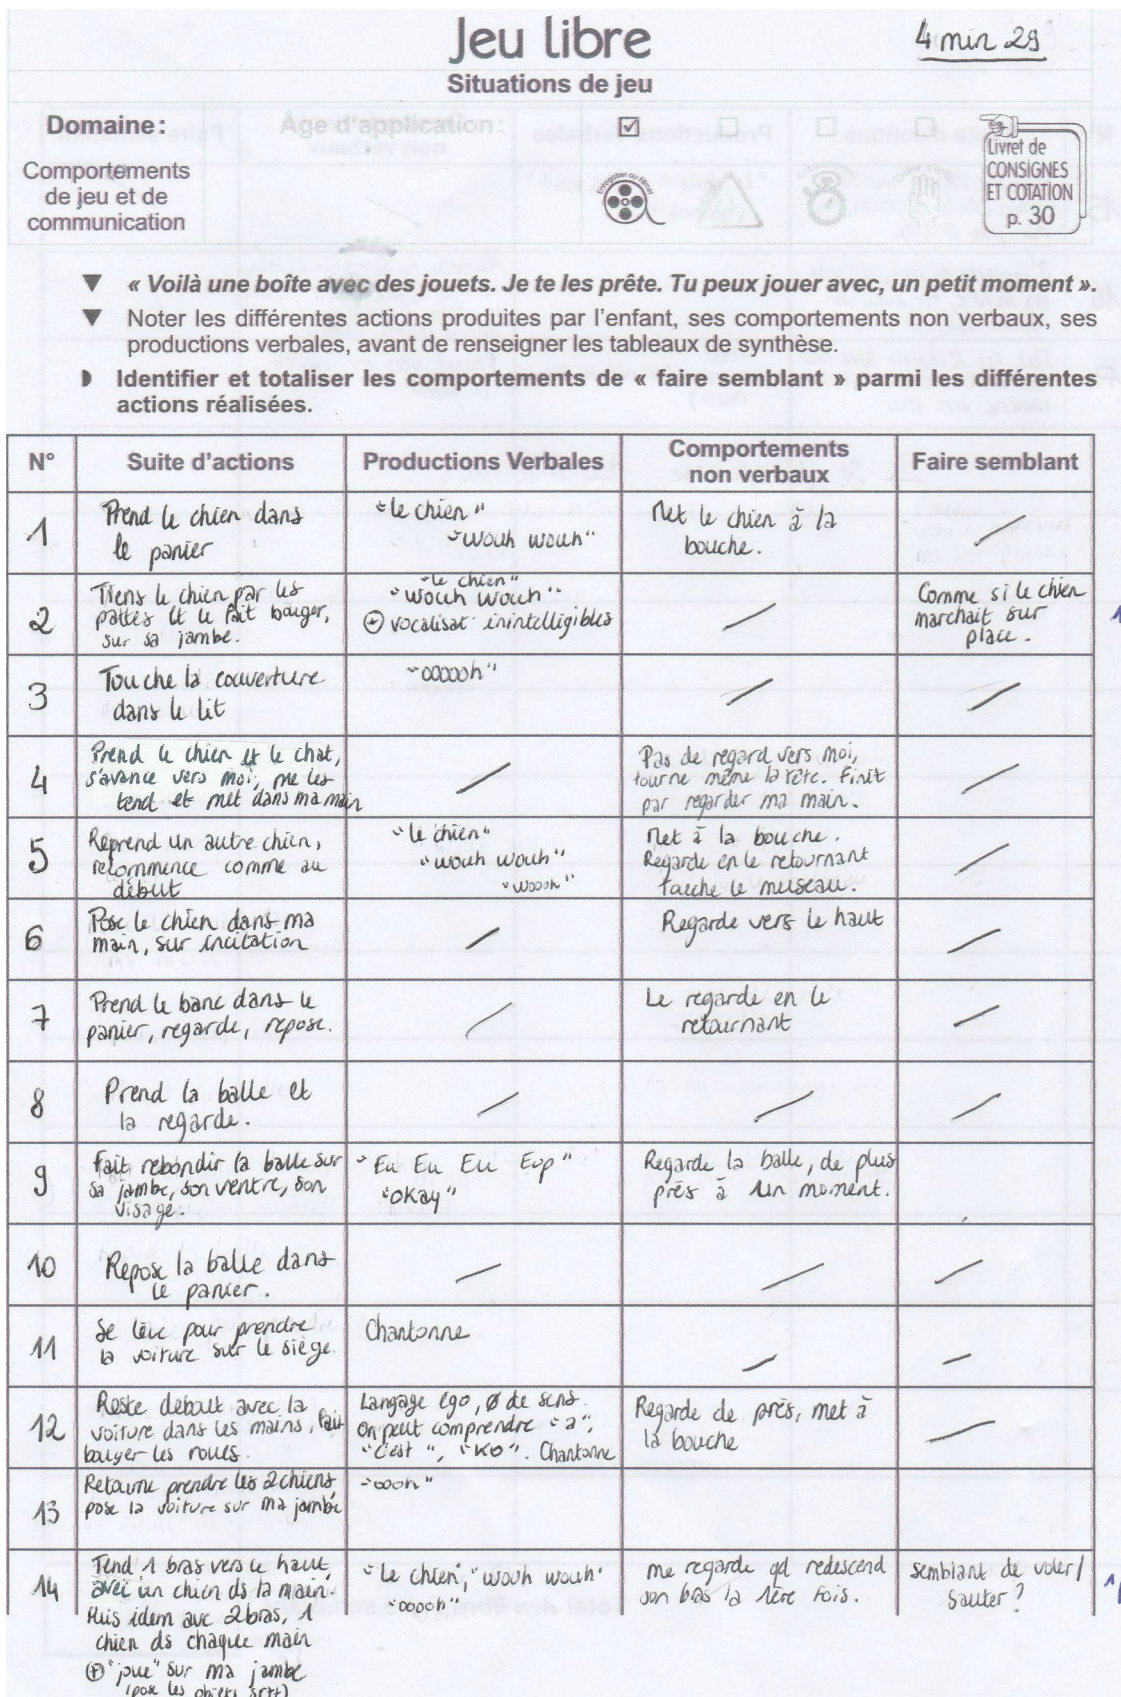 Jeu libre
4 min 29
Situations de jeu
Domaine :
Âge d'application :
Comportements
de jeu et de
communication
Enregistrer ou filmer
Livret de
CONSIGNES
ET COTATION
p. 30
▼ « Voilà une boîte avec des jouets. Je te les prête. Tu peux jouer avec, un petit moment ».
▼ Noter les différentes actions produites par l'enfant, ses comportements non verbaux, ses
productions verbales, avant de renseigner les tableaux de synthèse.
Identifier et totaliser les comportements de « faire semblant » parmi les différentes
actions réalisées.
N° Suite d'actions Productions Verbales Comportements non verbaux Faire semblant
1
Prend le chien dans
le panier
"le chien"
"wouh wouh"
Met le chien à la
bouche.
2
Tiens le chien par les
pattes et le fait bouger,
sur sa jambe.
"le chien"
"wouh wouh"
⊕ vocalisat° inintelligibles
Comme si le chien
marchait sur
place.
1
3
Touche la couverture
dans le lit
"ooooh"
4
Prend le chien et le chat,
s'avance vers moi, me les
tend et met dans ma main
Pas de regard vers moi,
tourne même la tête. Finit
par regarder ma main.
5
Reprend un autre chien,
recommence comme au
début
"le chien"
"wouh wouh"
"woooh"
Met à la bouche.
Regarde en le retournant
touche le museau.
6
Pose le chien dans ma
main, sur incitation
Regarde vers le haut
7
Prend le banc dans le
panier, regarde, repose.
Le regarde en le
retournant
8
Prend la balle et
la regarde.
9
Fait rebondir la balle sur
sa jambe, son ventre, son
visage.
"Eu Eu Eu Eup"
"okay"
Regarde la balle, de plus
près à un moment.
10
Repose la balle dans
le panier.
11
Se lève pour prendre
la voiture sur le siège.
Chantonne
12
Reste debout avec la
voiture dans les mains, fait
bouger les roues.
Langage égo, Ø de sens.
On peut comprendre "a",
"c'est", "KO". Chantonne
Regarde de près, met à
la bouche
13
Retourne prendre les 2 chiens,
pose la voiture sur ma jambe
"oooh"
14
Tend 1 bras vers le haut,
avec un chien ds la main.
Puis idem avc 2 bras, 1
chien ds chaque main
⊕ "joue" sur ma jambe
(pose les objets
"le chien", "wouh wouh"
"ooooh"
me regarde qd redescend
son bras la 1ère fois.
semblant de voler/
sauter ?
1